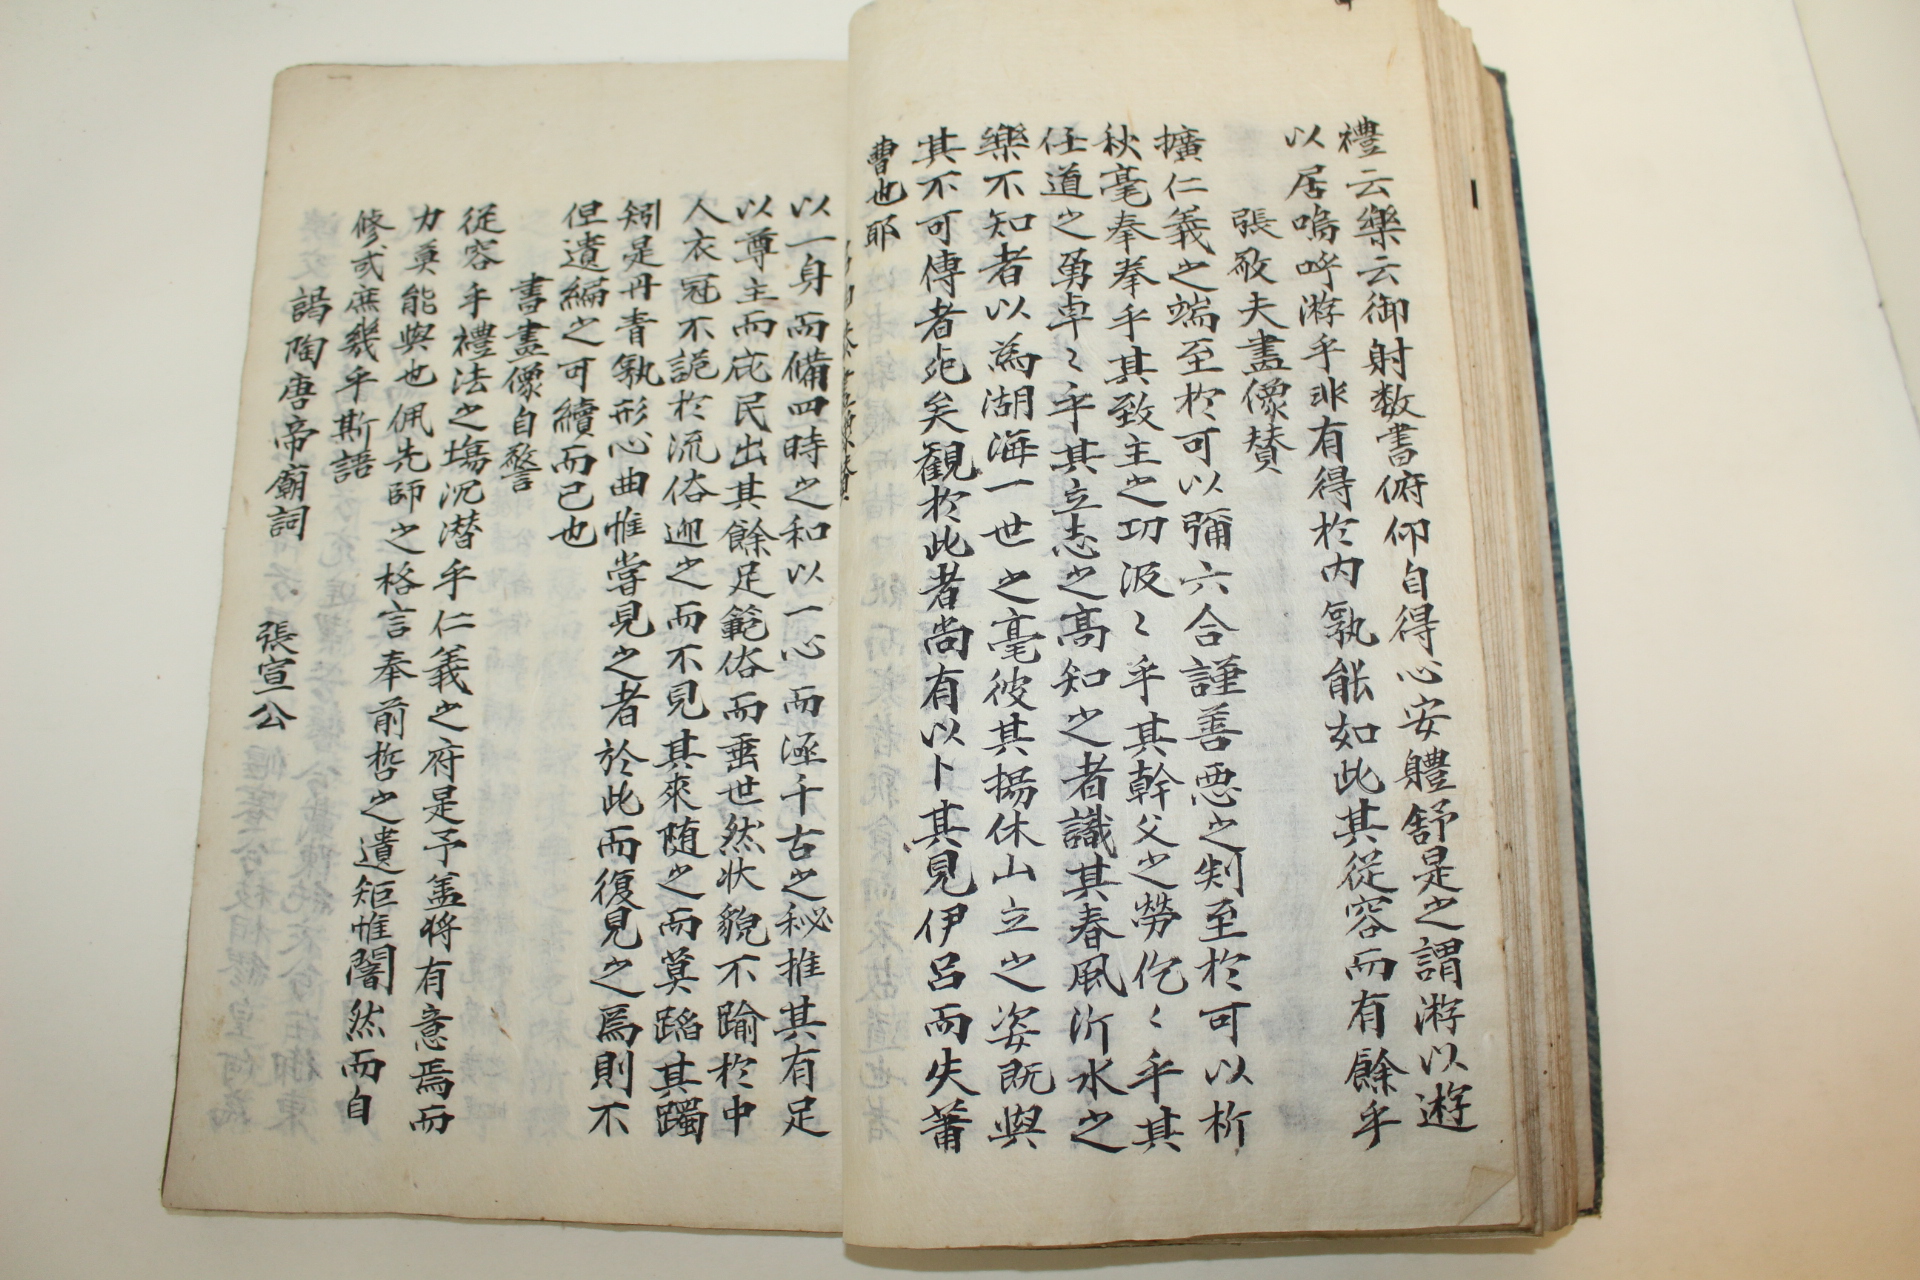 禮云樂云御射数書俯仰自得心安體舒是之謂游以遊
以居嗚呼游乎非有得於内孰能如此其從容而有餘乎
張敬夫畫像賛
擴仁義之端至於可以彌六合謹善惡之判至於可以析
秋毫拳拳乎其致主之功汲〻乎其幹父之勞仡〻乎其
任道之勇卓〻乎其立志之高知之者識其春風沂水之
樂不知者以為湖海一世之豪彼其揚休山立之姿既與
其不可傳者死矣觀於此者尚有以卜其見伊呂而失蕭
曹也耶
以一身而備四時之和以一心而涵千古之秘推其有足
以尊主而庇民出其餘足範俗而垂世然状貌不踰於中
人衣冠不詭於流俗迎之而不見其來随之而莫蹈其躅
矧是丹青孰形心曲惟嘗見之者於此而復見之焉則不
但遺編之可續而已也
書畫像自警
從容乎禮法之場沉潜乎仁義之府是予盖将有意焉而
力莫能與也佩先師之格言奉前哲之遺矩惟闇然而自
修或庶幾乎斯語
謁陶唐帝廟詞 張宣公